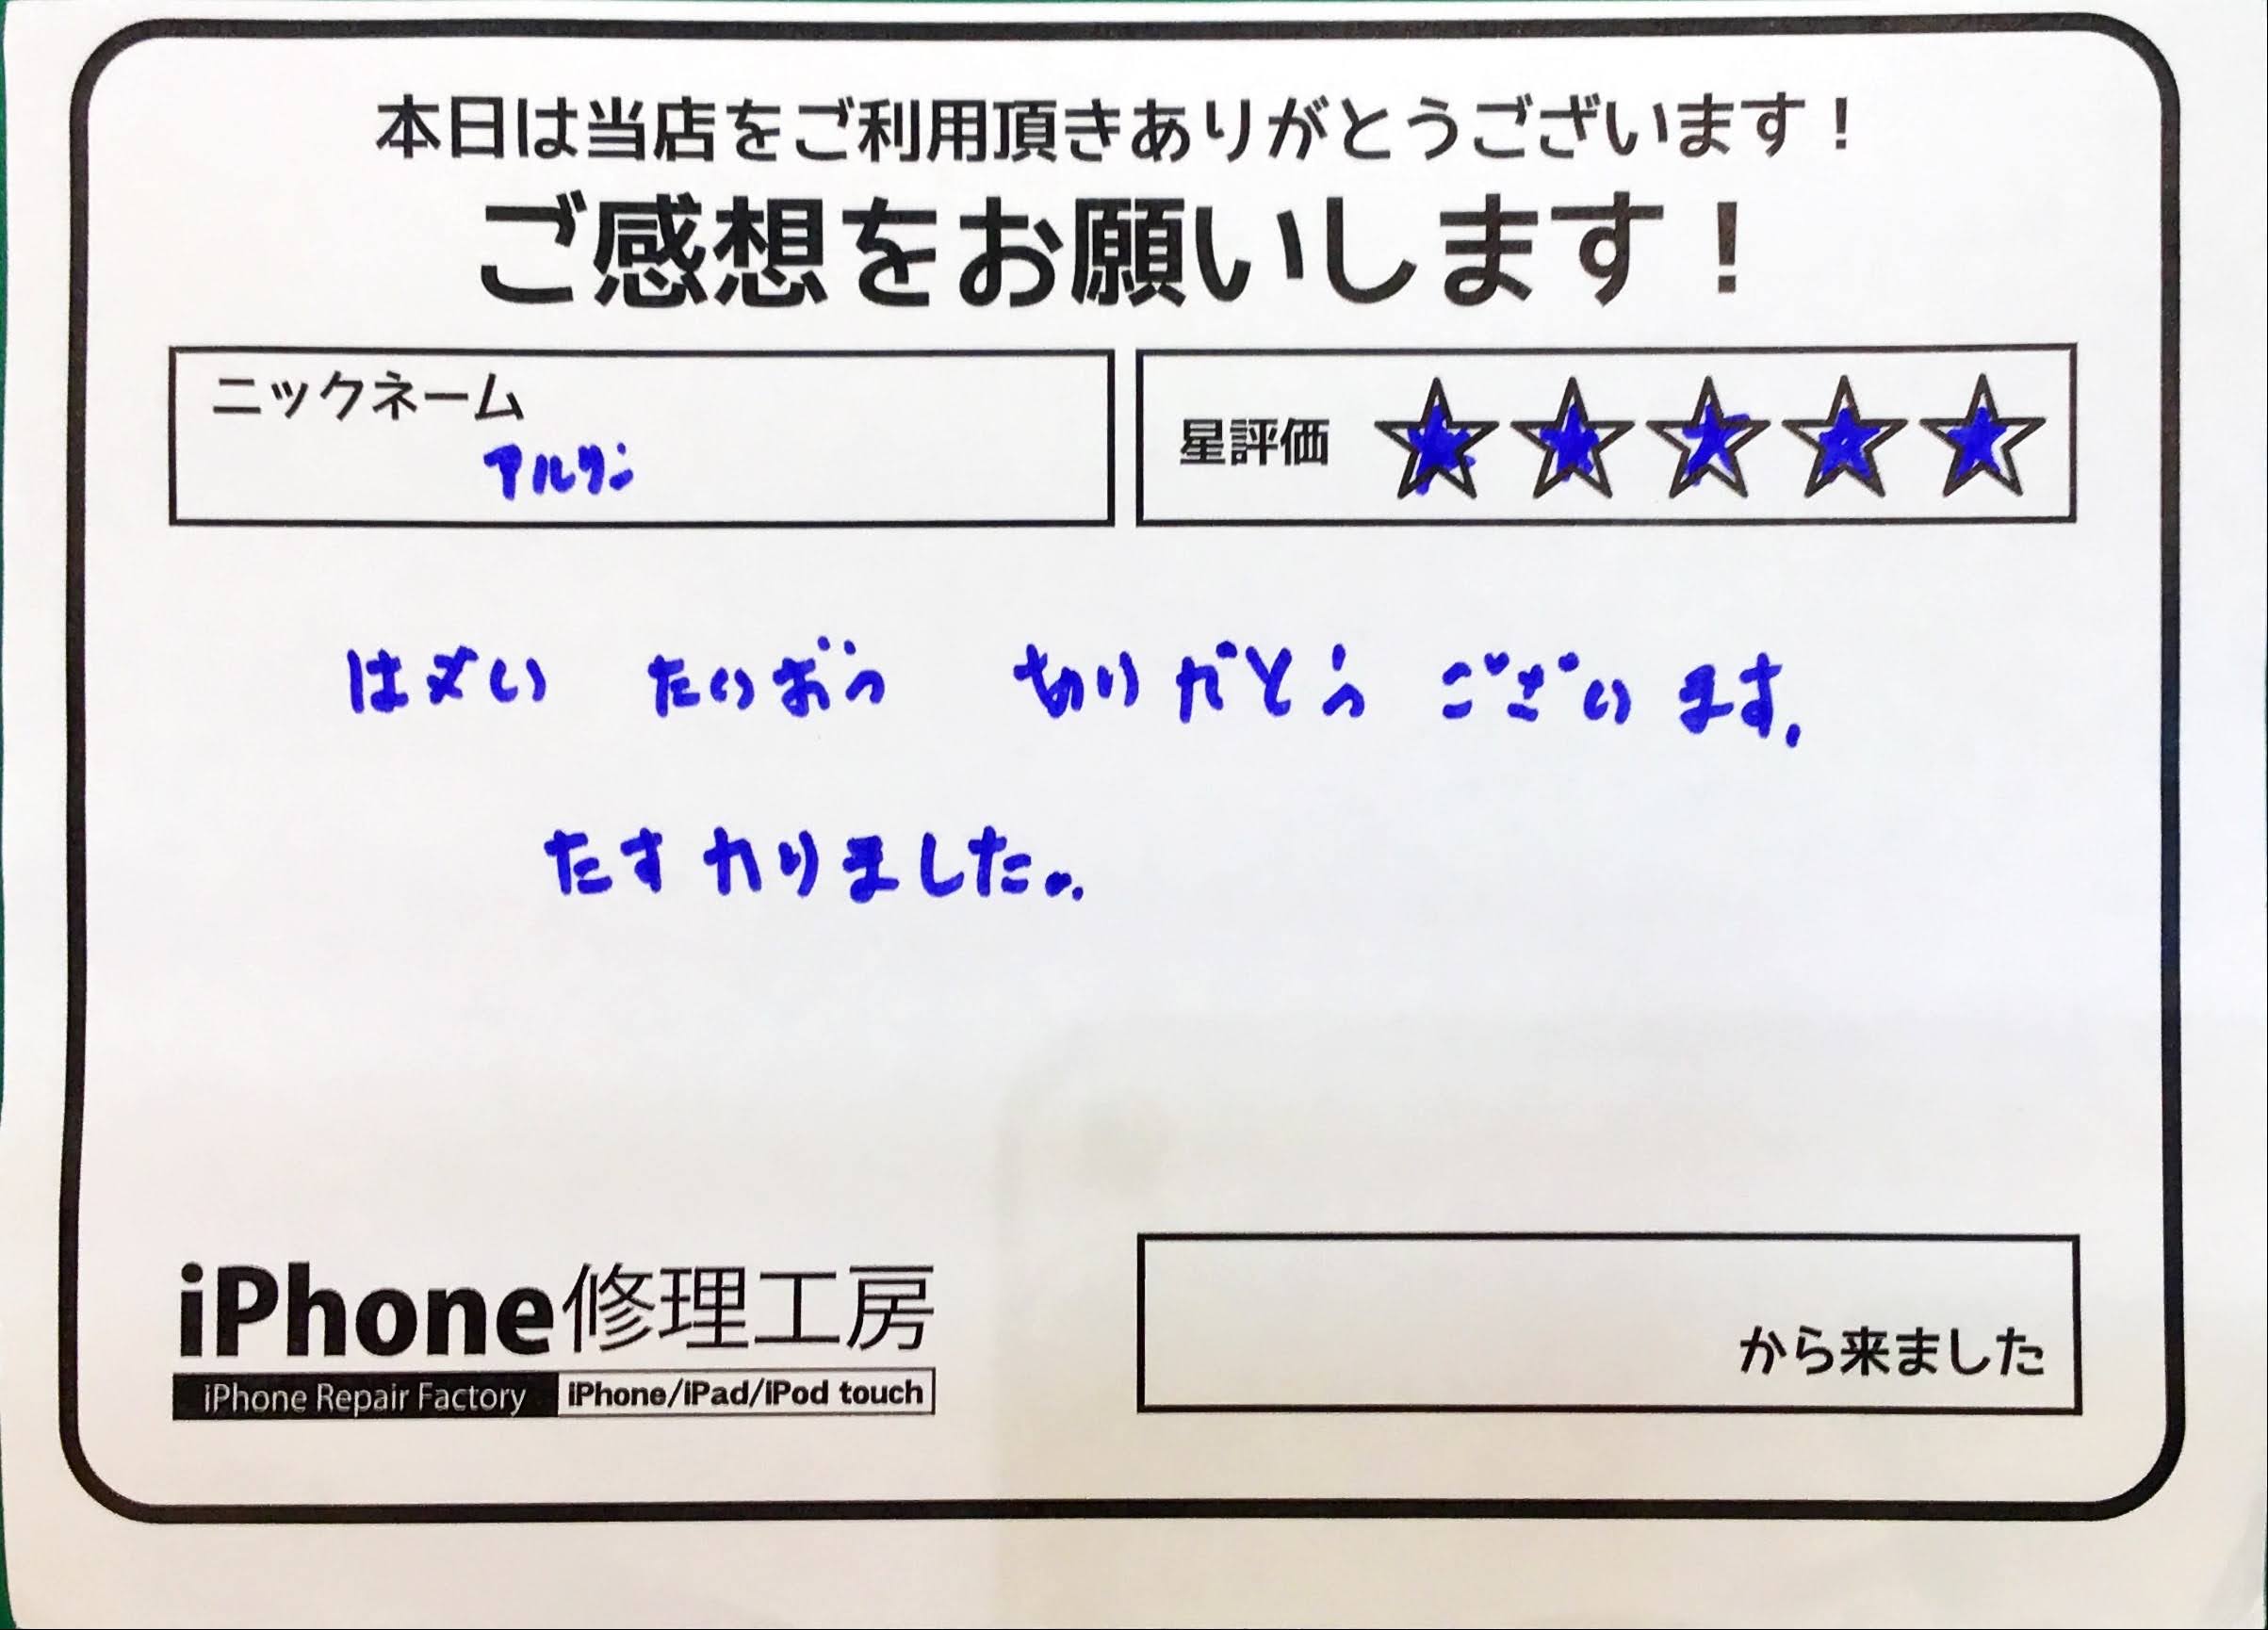 本日は当店をご利用頂きありがとうございます！
ご感想をお願いします！
ニックネーム
アルワン
星評価 ★★★★★
はメい たいおう ありがとうございます。
たすかりました。
iPhone修理工房
iPhone Repair Factory iPhone/iPad/iPod touch
から来ました